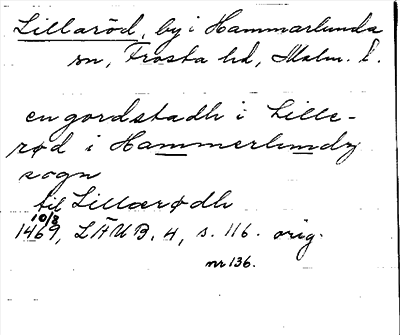 Lillaröd, by i Hammarlunda
sn, Frosta hd, Malm. l.
en gordstadh i Lille-
rød i Hammerlundz
sogn
til Lillærødh
10/3
1469, LÄUB. 4, s. 116. orig.
nr 136.